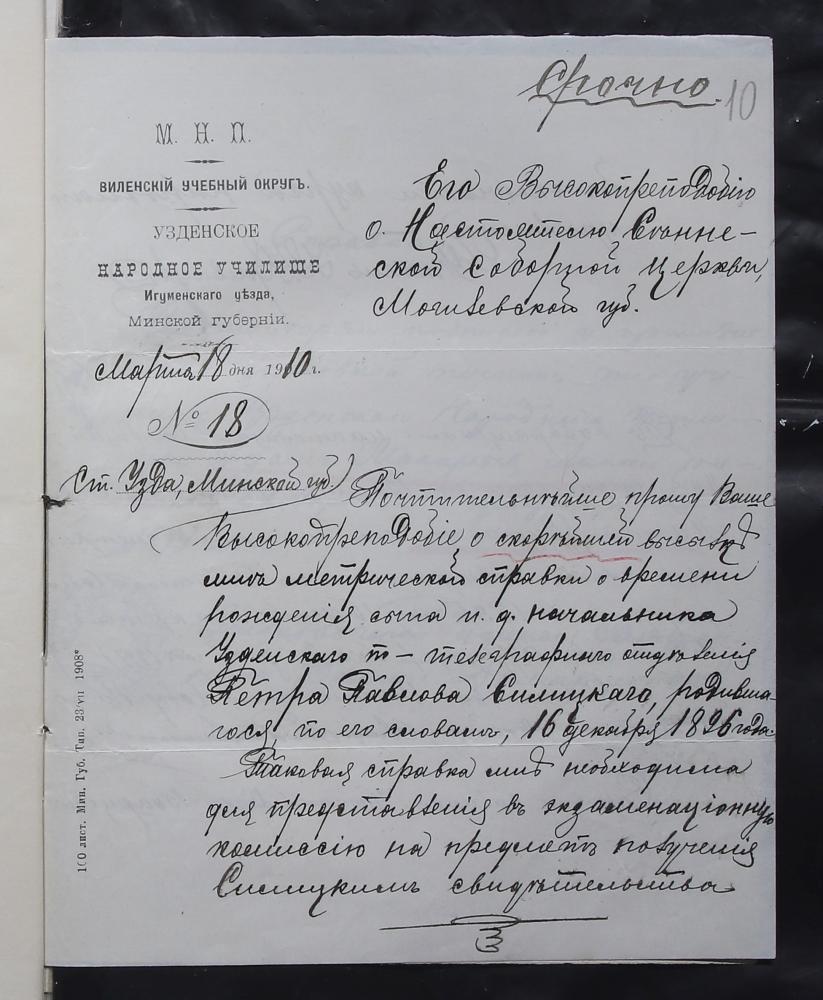 Срочно.
10
М. Н. П.
ВИЛЕНСКІЙ УЧЕБНЫЙ ОКРУГЪ.
УЗДЕНСКОЕ
НАРОДНОЕ УЧИЛИЩЕ
Игуменскаго уѣзда,
Минской губерніи.
Марта 18 дня 1910 г.
№ 18
Ст. Узда, Минской губ.
Его Высокопреподобію
о. Настоятелю Сѣннен-
ской Соборной Церкви,
Могилевской губ.
Почтительнѣйше прошу Ваше
Высокопреподобіе о скорѣйшей высылкѣ
мнѣ метрической справки о времени
рожденія сына и. д. начальника
Узденскаго п.-телеграфнаго отдѣленія
Петра Павлова Силицкаго, родивша-
гося, по его словамъ, 16 декабря 1896 года.
Таковая справка мнѣ необходима
для представленія въ экзаменаціонную
комиссію на предметъ полученія
Силицкимъ свидѣтельства
100 лист. Мин. Губ. Тип. 23/VII 1908ᵍ